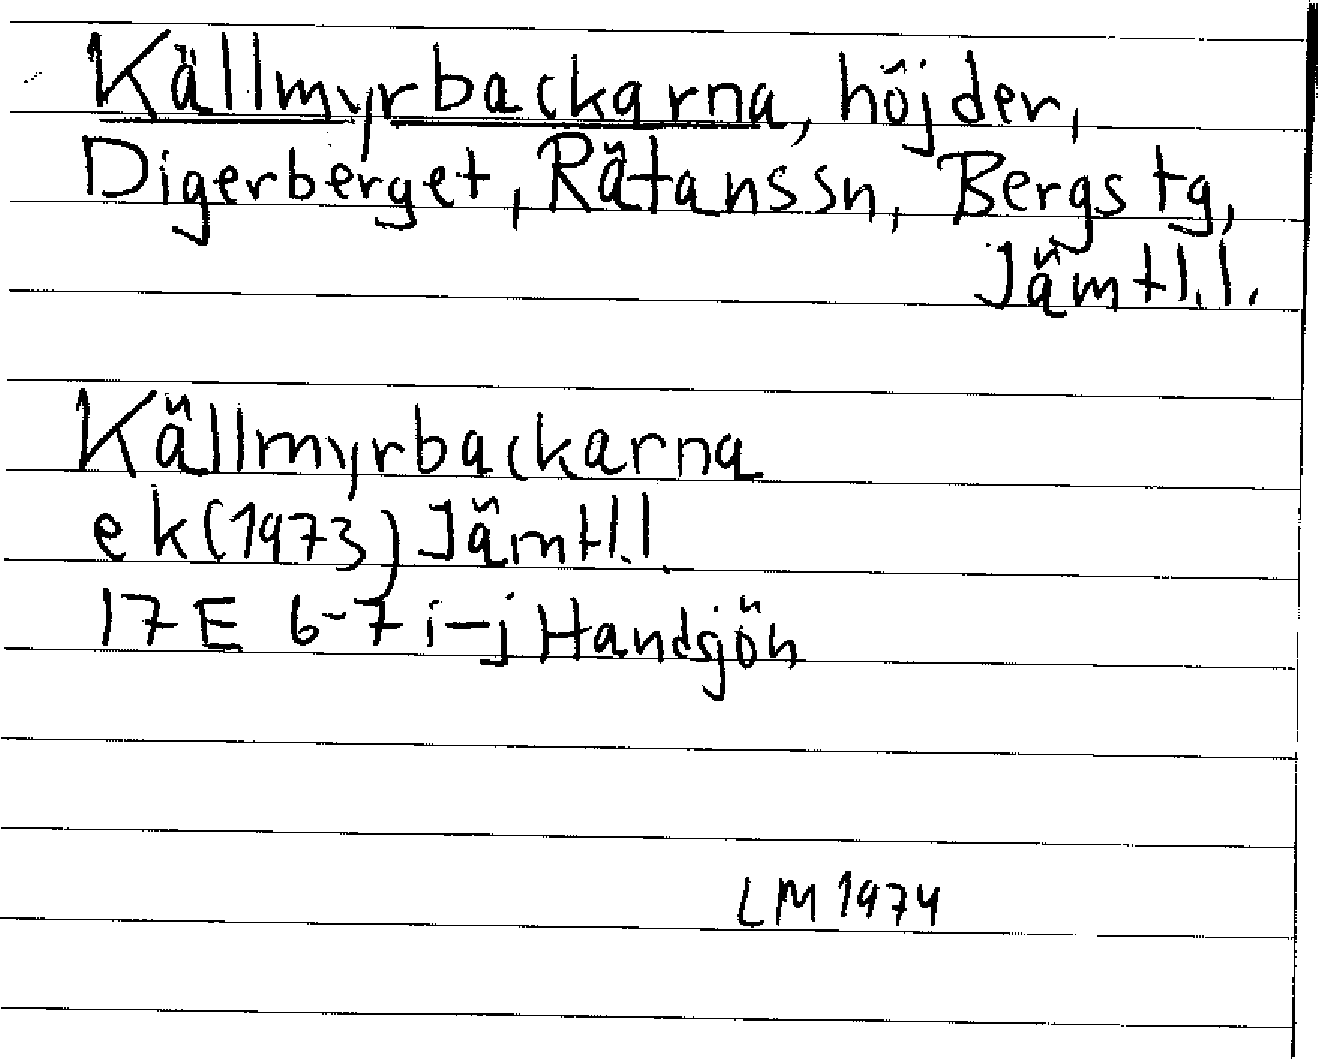 Källmyrbackarna, höjder,
Digerberget, Rätanssn, Bergs tg,
Jämtl.l.
Källmyrbackarna
ek (1973) Jämtl.l.
17E 6-7 i-j Handsjön
LM 1974